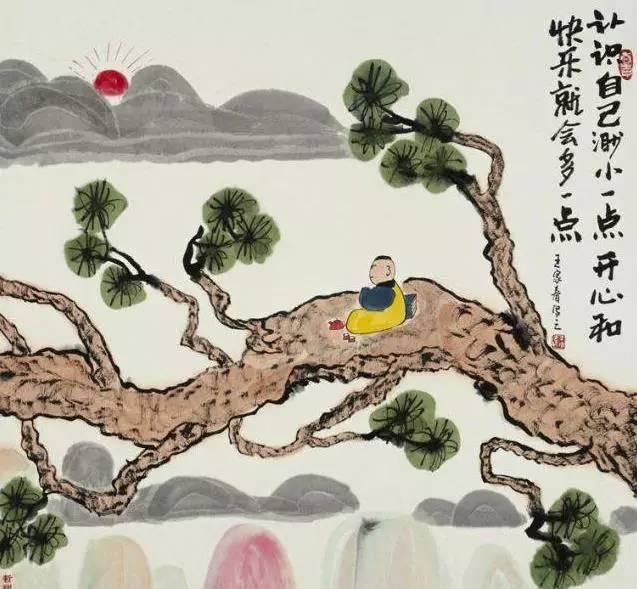 认识自己渺小一点 开心和
快乐就会多一点
王家春写之